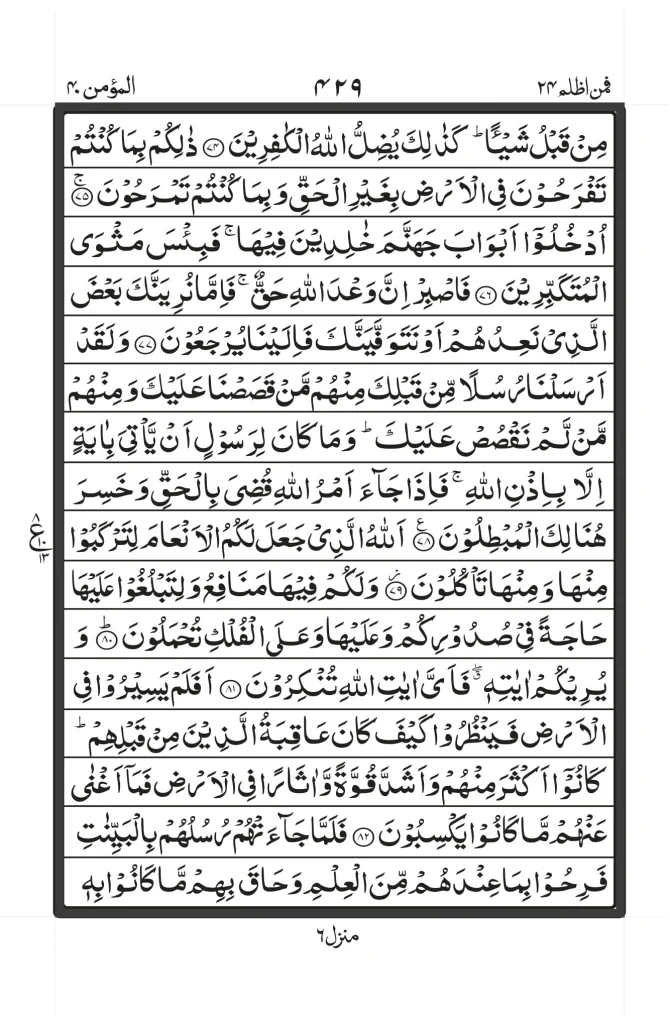 فمن اظلم ٢٤ ۴۲۹ المؤمن ۴۰
مِنْ قَبْلُ شَيْـًٔا ؕ كَذٰلِكَ يُضِلُّ اللّٰهُ الْكٰفِرِيْنَ ﴿۷۴﴾ ذٰلِكُمْ بِمَا كُنْتُمْ
تَفْرَحُوْنَ فِي الْاَرْضِ بِغَيْرِ الْحَقِّ وَبِمَا كُنْتُمْ تَمْرَحُوْنَ ﴿۷۵﴾ ۚ
اُدْخُلُوْۤا اَبْوَابَ جَهَنَّمَ خٰلِدِيْنَ فِيْهَا ۚ فَبِئْسَ مَثْوَى
الْمُتَكَبِّرِيْنَ ﴿۷۶﴾ فَاصْبِرْ اِنَّ وَعْدَ اللّٰهِ حَقٌّ ۚ فَاِمَّا نُرِيَنَّكَ بَعْضَ
الَّذِيْ نَعِدُهُمْ اَوْ نَتَوَفَّيَنَّكَ فَاِلَيْنَا يُرْجَعُوْنَ ﴿۷۷﴾ وَلَقَدْ
اَرْسَلْنَا رُسُلًا مِّنْ قَبْلِكَ مِنْهُمْ مَّنْ قَصَصْنَا عَلَيْكَ وَمِنْهُمْ
مَّنْ لَّمْ نَقْصُصْ عَلَيْكَ ؕ وَمَا كَانَ لِرَسُوْلٍ اَنْ يَّاْتِيَ بِاٰيَةٍ
اِلَّا بِاِذْنِ اللّٰهِ ۚ فَاِذَا جَآءَ اَمْرُ اللّٰهِ قُضِيَ بِالْحَقِّ وَخَسِرَ
هُنَالِكَ الْمُبْطِلُوْنَ ﴿۷۸﴾ ع اَللّٰهُ الَّذِيْ جَعَلَ لَكُمُ الْاَنْعَامَ لِتَرْكَبُوْا
۸ ع ۱۰ ۱۳
مِنْهَا وَمِنْهَا تَاْكُلُوْنَ ﴿۷۹﴾ وَلَكُمْ فِيْهَا مَنَافِعُ وَلِتَبْلُغُوْا عَلَيْهَا
حَاجَةً فِيْ صُدُوْرِكُمْ وَعَلَيْهَا وَعَلَى الْفُلْكِ تُحْمَلُوْنَ ﴿۸۰﴾ ؕ وَ
يُرِيْكُمْ اٰيٰتِهٖ ۖ فَاَيَّ اٰيٰتِ اللّٰهِ تُنْكِرُوْنَ ﴿۸۱﴾ اَفَلَمْ يَسِيْرُوْا فِي
الْاَرْضِ فَيَنْظُرُوْا كَيْفَ كَانَ عَاقِبَةُ الَّذِيْنَ مِنْ قَبْلِهِمْ ؕ
كَانُوْۤا اَكْثَرَ مِنْهُمْ وَاَشَدَّ قُوَّةً وَّاٰثَارًا فِي الْاَرْضِ فَمَاۤ اَغْنٰى
عَنْهُمْ مَّا كَانُوْا يَكْسِبُوْنَ ﴿۸۲﴾ فَلَمَّا جَآءَتْهُمْ رُسُلُهُمْ بِالْبَيِّنٰتِ
فَرِحُوْا بِمَا عِنْدَهُمْ مِّنَ الْعِلْمِ وَحَاقَ بِهِمْ مَّا كَانُوْا بِهٖ
منزل ٦